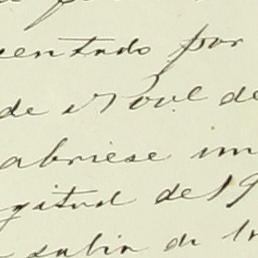 entado por
de Noul de
abriese un
gitud de 19
salir de l